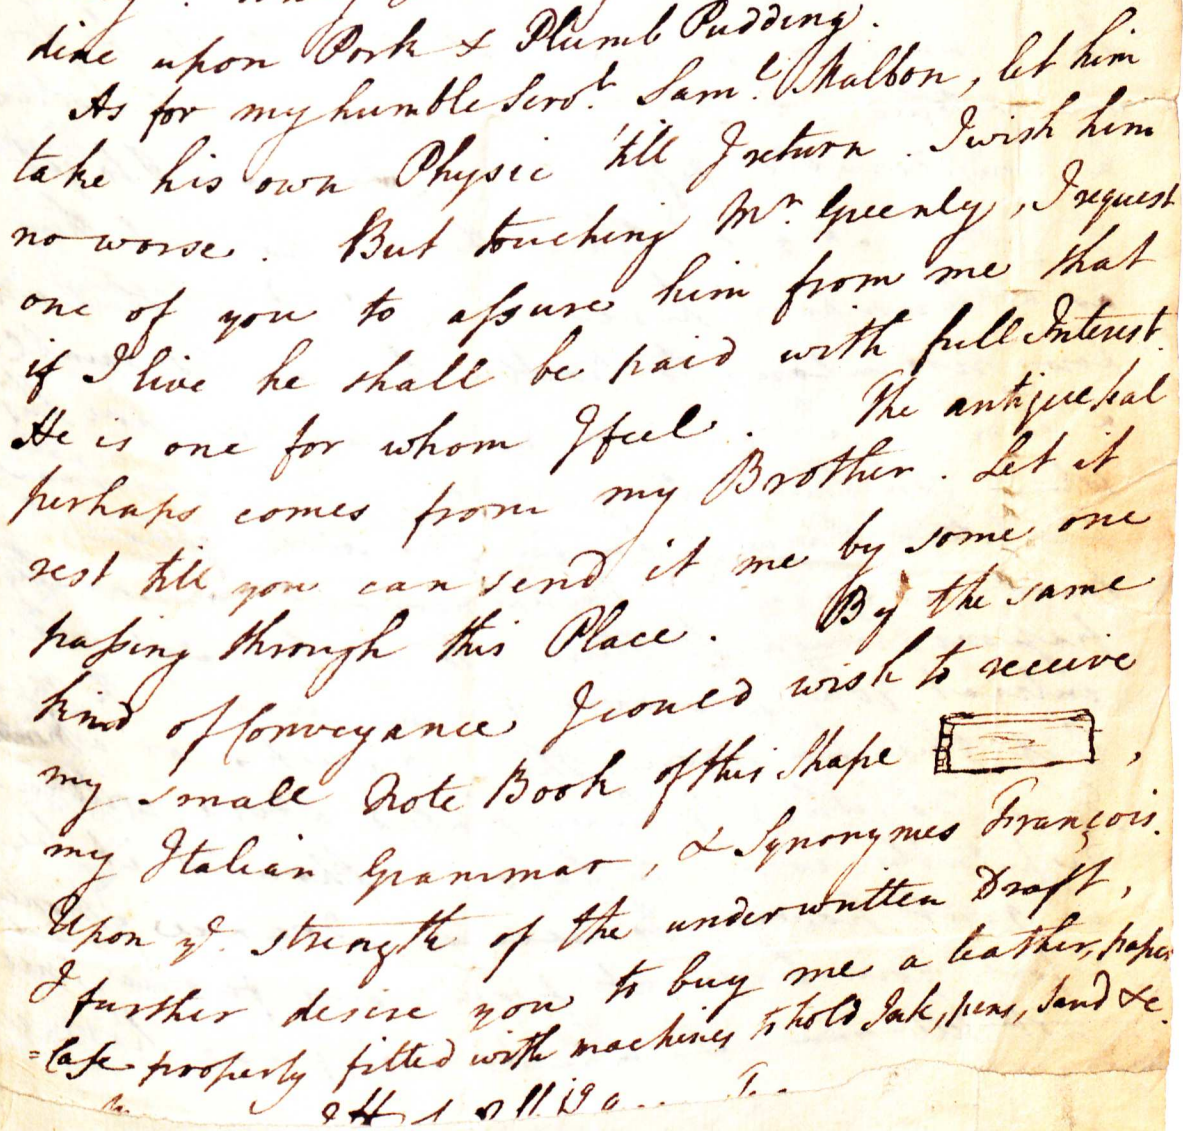 dine upon Pork & Plumb Pudding.
As for my humble Servt. Saml. Malbon, let him
take his own Physic 'till I return. I wish him
no worse. But touching Mr. Greenly, I request
one of you to aſsure him from me that
if I live he shall be paid with full Interest.
He is one for whom I feel. The antique seal
perhaps comes from my Brother. Let it
rest till you can send it me by some one
paſsing through this Place. By the same
kind of Conveyance I could wish to receive
my small Note Book of this Shape ,
my Italian Grammar, & Synonymes François.
Upon ye. strength of the underwritten Draft,
I further desire you to buy me a leather, paper
=Case properly fitted with machines to hold Ink, pens, Sand &c.